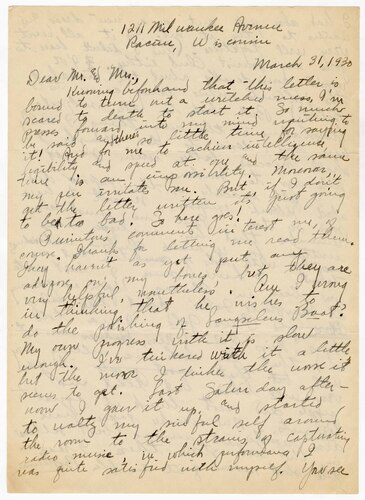 1211 Milwaukee Avenue
Racine, Wisconsin
March 31, 1930
Dear Mr. and Mrs.,
Knowing beforehand that this letter is
bound to turn out a wretched mess, I've
scared to death to start it. So much
presses forward into my mind wanting to
be said and there's so little time for saying
it! And for me to achieve intelligence,
legibility and speed at one and the same
time is an impossibility. Moreover,
my pen irritates me. But if I don't
get the letter written it's just going
to be too bad. So here goes!
comments interest me, of
course. Thanks for letting me read them.
They haven't as yet put any
on my bones but they are
very helpful, nonetheless. Am I wrong
in thinking that he wishes to
do the polishing of Boat?
My own progress with it is slow
enough. I've tinkered with it a little
but the more I tinker the worse it
seems to get. Last Saturday after-
noon I gave it up and started
to waltz my sinful self around
the room to the strains of captivating
radio music, in which performance I
was quite satisfied with myself. You see